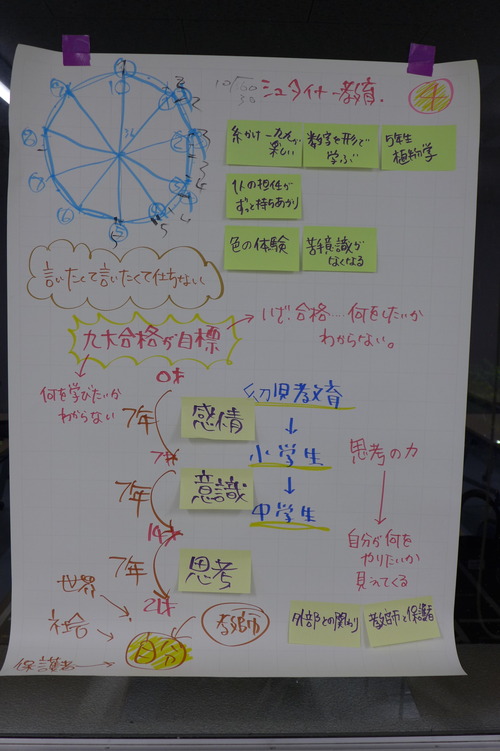 シュタイナー教育.
糸かけ 九九が
楽しい
数字を形で
学ぶ
5年生
植物学
1人の担任が
ずっと持ちあがり
色の体験
苦手意識が
なくなる
言いたくて言いたくて仕方ない
九大合格が目標
いざ!合格…何をしたいか
わからない。
何を学びたいか
わからない
0才
7年
感情
7才
7年
意識
14才
7年
思考
21才
幼児教育
↓
小学生
↓
中学生
思考の力
自分が何を
やりたいか
見えてくる
世界
社会
保護者
自分
教師
外部との関わり
教師と保護者